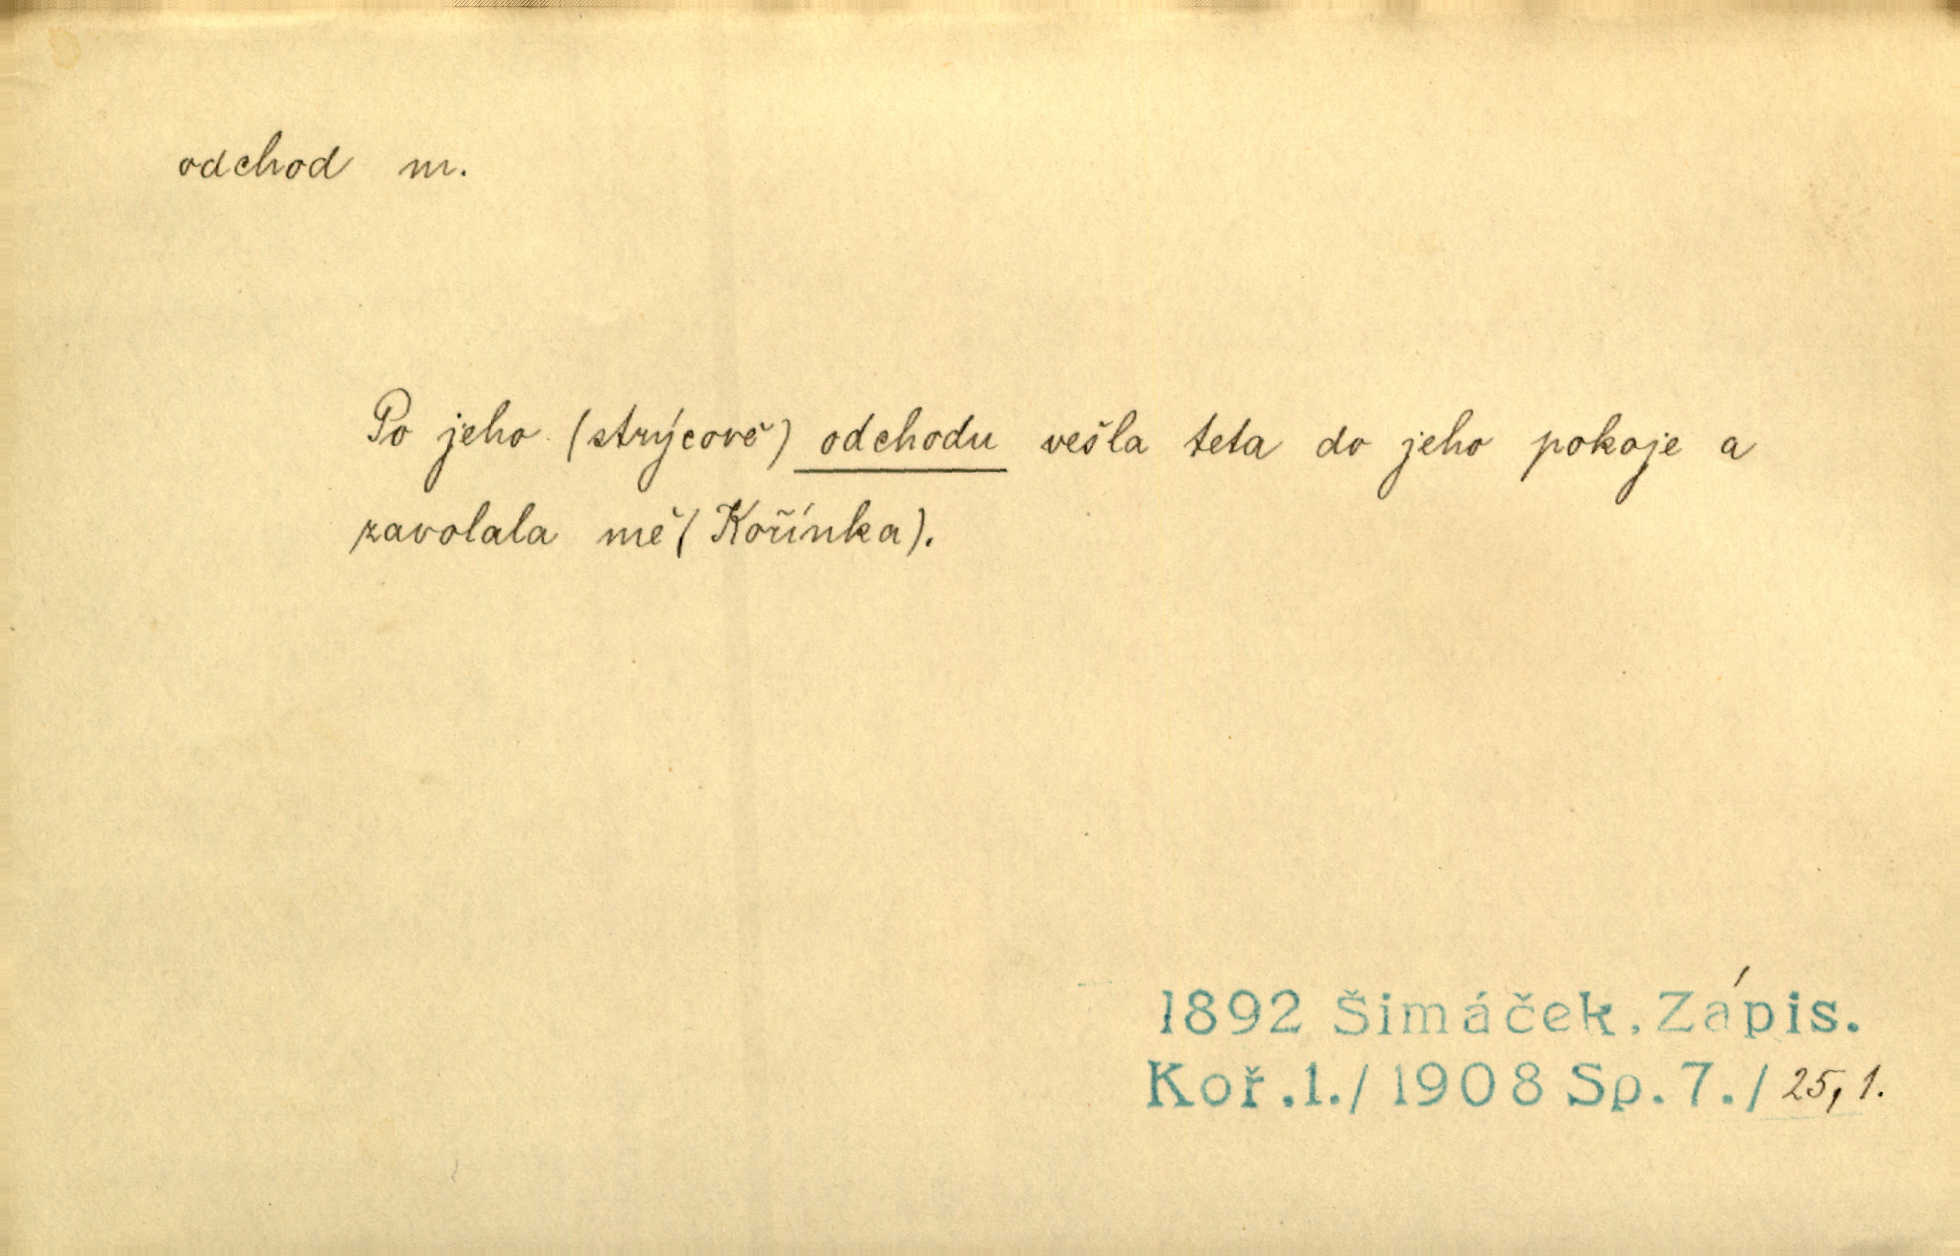 odchod m.
Po jeho (strýcově) odchodu vešla teta do jeho pokoje a
zavolala mě (Kořínka).
1892 Šimáček, Zápis.
Koř.1./1908 Sp.7./25, 1.